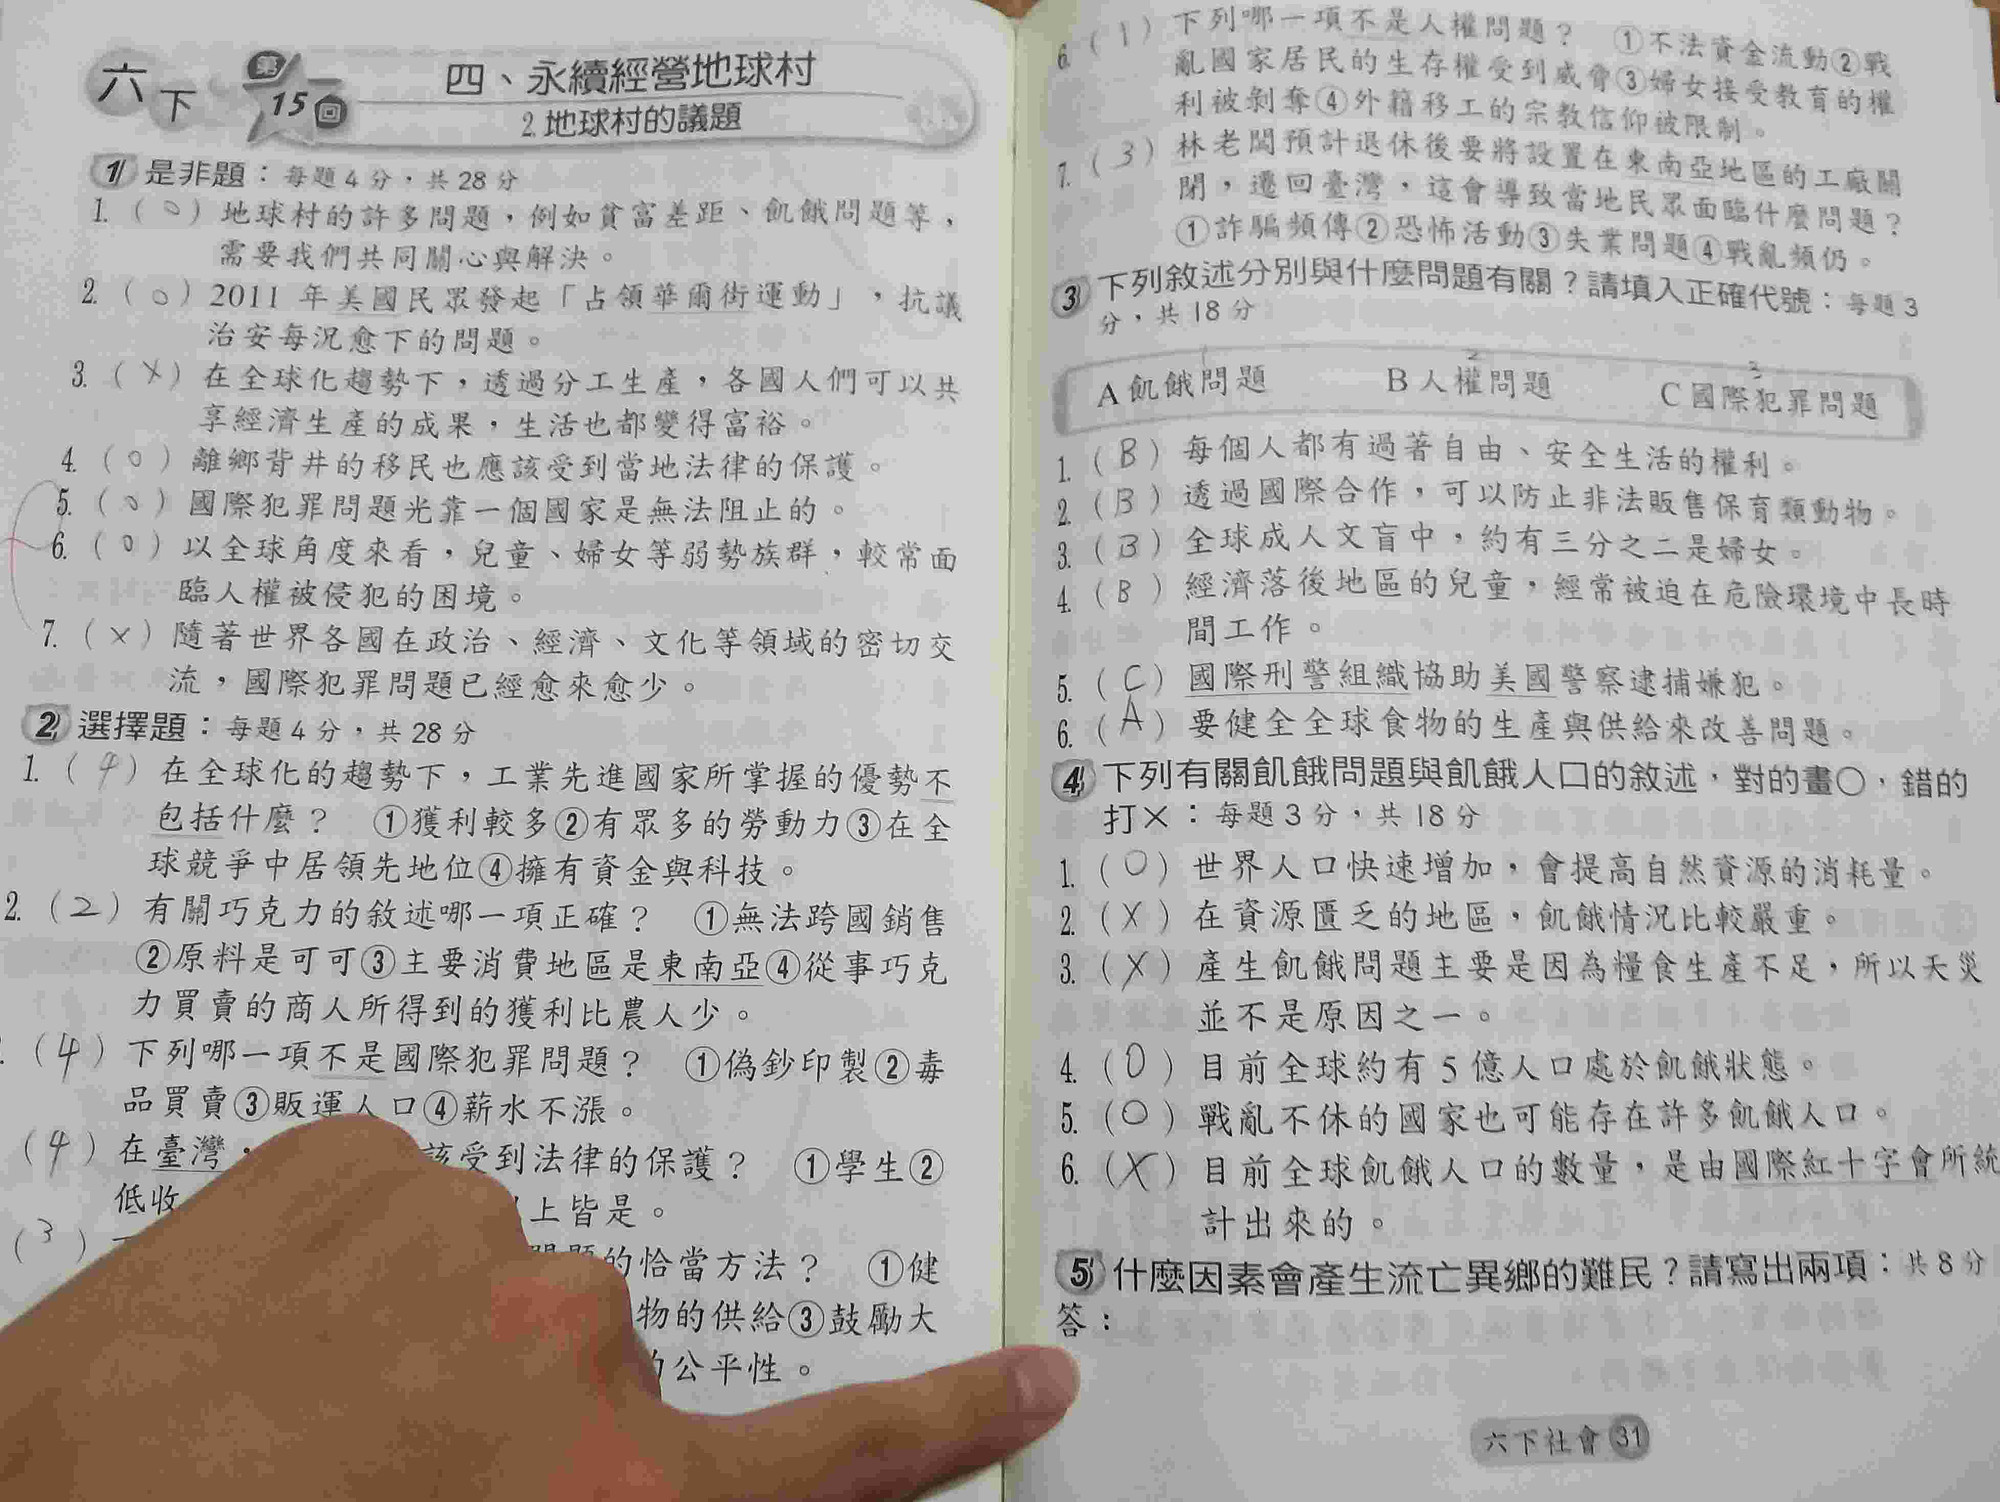 六下 第15回 四、永續經營地球村
2.地球村的議題
1 是非題：每題4分，共28分
1.（○）地球村的許多問題，例如貧富差距、飢餓問題等，
需要我們共同關心與解決。
2.（○）2011年美國民眾發起「占領華爾街運動」，抗議
治安每況愈下的問題。
3.（×）在全球化趨勢下，透過分工生產，各國人們可以共
享經濟生產的成果，生活也都變得富裕。
4.（○）離鄉背井的移民也應該受到當地法律的保護。
5.（○）國際犯罪問題光靠一個國家是無法阻止的。
6.（○）以全球角度來看，兒童、婦女等弱勢族群，較常面
臨人權被侵犯的困境。
7.（×）隨著世界各國在政治、經濟、文化等領域的密切交
流，國際犯罪問題已經愈來愈少。
2 選擇題：每題4分，共28分
1.（4）在全球化的趨勢下，工業先進國家所掌握的優勢不
包括什麼？ ①獲利較多②有眾多的勞動力③在全
球競爭中居領先地位④擁有資金與科技。
2.（2）有關巧克力的敘述哪一項正確？ ①無法跨國銷售
②原料是可可③主要消費地區是東南亞④從事巧克
力買賣的商人所得到的獲利比農人少。
（4）下列哪一項不是國際犯罪問題？ ①偽鈔印製②毒
品買賣③販運人口④薪水不漲。
（4）在臺灣，該受到法律的保護？ ①學生②
低收上皆是。
（3）問題的恰當方法？ ①健
物的供給③鼓勵大
公平性。
6.（1）下列哪一項不是人權問題？ ①不法資金流動②戰
亂國家居民的生存權受到威脅③婦女接受教育的權
利被剝奪④外籍移工的宗教信仰被限制。
7.（3）林老闆預計退休後要將設置在東南亞地區的工廠關
閉，遷回臺灣，這會導致當地民眾面臨什麼問題？
①詐騙頻傳②恐怖活動③失業問題④戰亂頻仍。
3 下列敘述分別與什麼問題有關？請填入正確代號：每題3
分，共18分
1 2 3
A飢餓問題 B人權問題 C國際犯罪問題
1.（B）每個人都有過著自由、安全生活的權利。
2.（B）透過國際合作，可以防止非法販售保育類動物。
3.（B）全球成人文盲中，約有三分之二是婦女。
4.（B）經濟落後地區的兒童，經常被迫在危險環境中長時
間工作。
5.（C）國際刑警組織協助美國警察逮捕嫌犯。
6.（A）要健全全球食物的生產與供給來改善問題。
4 下列有關飢餓問題與飢餓人口的敘述，對的畫○，錯的
打×：每題3分，共18分
1.（○）世界人口快速增加，會提高自然資源的消耗量。
2.（×）在資源匱乏的地區，飢餓情況比較嚴重。
3.（×）產生飢餓問題主要是因為糧食生產不足，所以天災
並不是原因之一。
4.（○）目前全球約有5億人口處於飢餓狀態。
5.（○）戰亂不休的國家也可能存在許多飢餓人口。
6.（×）目前全球飢餓人口的數量，是由國際紅十字會所統
計出來的。
5 什麼因素會產生流亡異鄉的難民？請寫出兩項：共8分
答：
六下社會 31